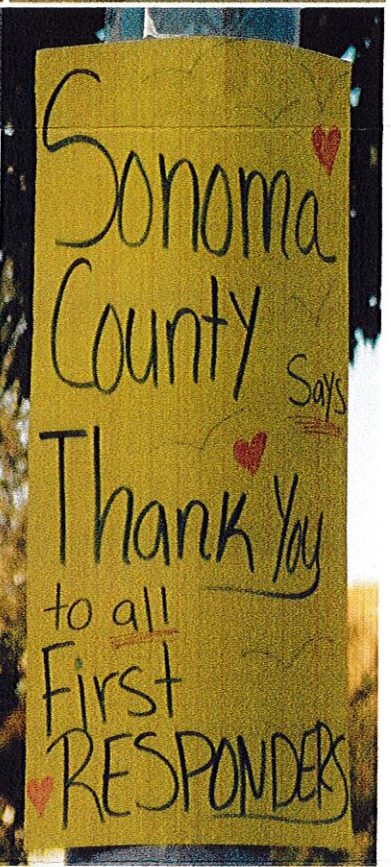 Sonoma
County
Says
Thank You
to all
First
RESPONDERS